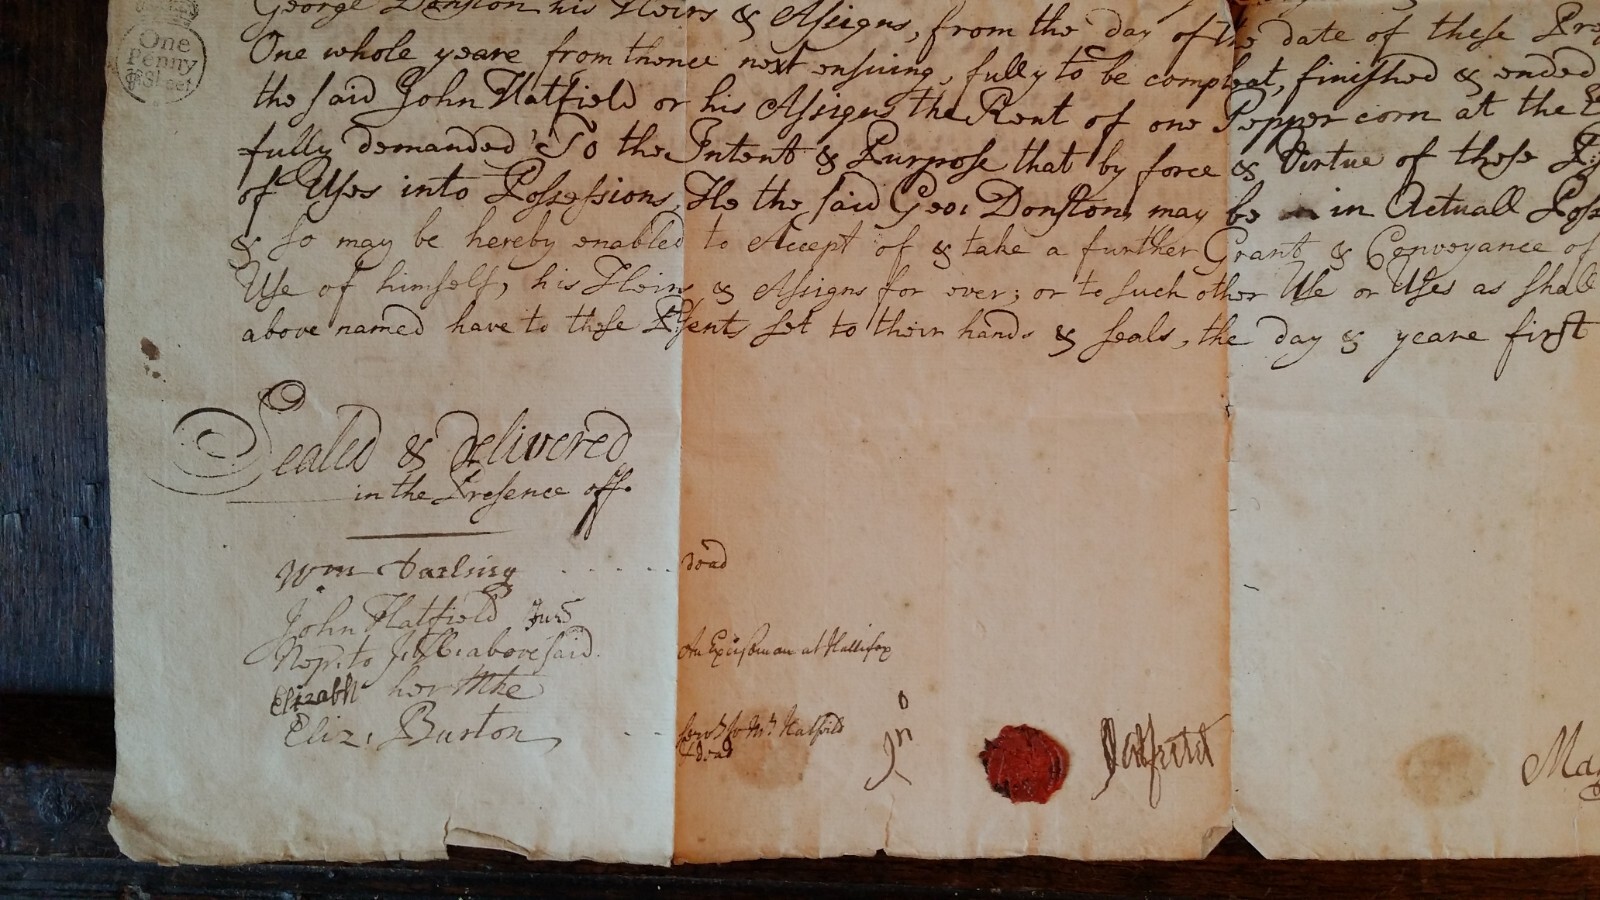 One
Penny
George Donston his Heirs & Assigns, from the day of the date of these
One whole yeare from thence next ensuing, fully to be compleat, finished & ended
the said John Hatfield or his Assigns the Rent of one Pepper corn at the
fully demanded To the Intent & Purpose that by force & Virtue of these
of Uses into Possessions, He the said Geo: Donston, may be in Actuall
& so may be hereby enabled to Accept of & take a further Grant & Conveyance of
Use of himself, his Heirs & Assigns for ever; or to such other Use or Uses as shall
above named have to these Psents set to their hands & seals, the day & yeare first
Sealed & Delivered
in the Presence off.
Wm Darling ...... dead
John Hatfield Junr
Nep: to J: H: abovesaid. An Exciseman at Hallifax
Elizabh her Mke
Eliz: Burton -- Servt to Mr Hatfeild
dead
Jno Hatfeild